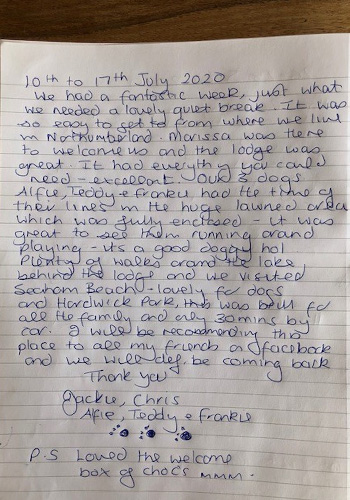 10th to 17th July 2020
We had a fantastic week, just what
we needed a lovely quiet break. It was
so easy to get to from where we live
in Northumberland. Marissa was there
to welcome us and the lodge was
great. It had everything you could
need - excellent. Our 3 dogs
Alfie, Teddy & Frankie had the time of
their lives in the huge lawned area
which was fully enclosed - it was
great to see them running around
playing - its a good doggy hol
Plenty of walks around the lake
behind the lodge and we visited
Seaham Beach - lovely for dogs
and Hardwick Park, this was brill for
all the family and only 30mins by
car. I will be recommending this
place to all my friends on facebook
and we will def. be coming back
Thank you
Jackie, Chris
Alfie, Teddy & Frankie
P.S Loved the welcome
box of choc's mmm.